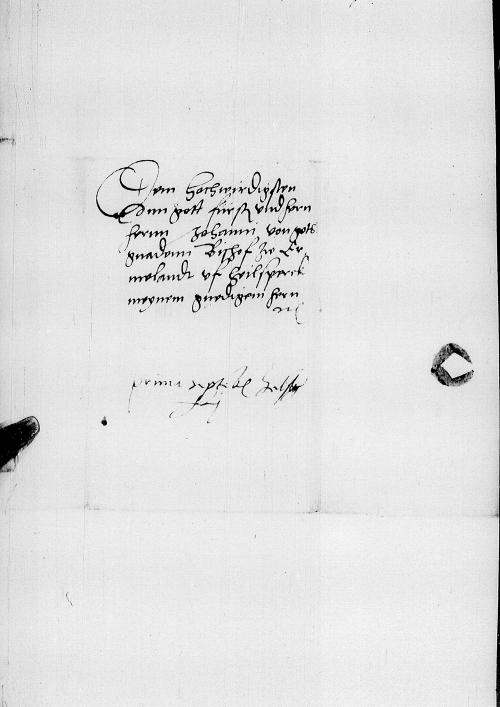 Dem hochwirdigsten
Inn gott fürst vnd hern
hernn Johanni von gots
gnadenn Bischof zw Er,,
melandt vf heilsperck
meynem gnedigem hern
prima septe